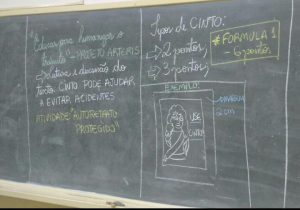 Educar para humanizar o
trânsito - PROJETO ARTEMIS
→ Leitura e discussão do
texto: CINTO PODE AJUDAR
A EVITAR ACIDENTES
ATIVIDADE "AUTORRETRATO
PROTEGIDO"
Tipos de CINTO:
→ 2 pontos;
→ 3 pontos;
* FÓRMULA 1
- 6 pontos
EXEMPLO:
USE
CINTO!
2 cm